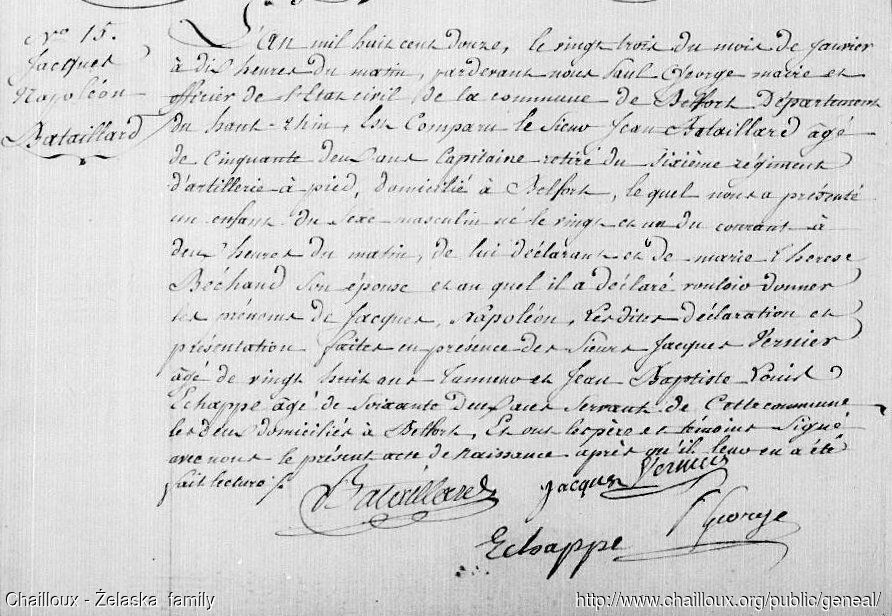 No 15.
Jacques
Napoléon
Bataillard
L'an mil huit cent douze, le vingt trois du mois de Janvier
à dix heures du matin, pardevant nous Paul George maire et
officier de l'Etat civil de la commune de Belfort Département
du haut-Rhin, Est Comparu le sieur Jean Bataillard âgé
de cinquante deux ans Capitaine retiré du sixième régiment
d'artillerie à pied, domicilié à Belfort, lequel nous a présenté
un enfant du sexe masculin né le vingt et un du courant à
deux heures du matin, de lui déclarant et de marie Therese
Béchaud son épouse et au quel il a déclaré vouloir donner
les prénoms de Jacques, Napoléon, Lesdites déclaration et
présentation faites en présence des sieurs Jacques Vernier
âgé de vingt huit ans Tanneur et Jean Baptiste Louis
Echappe âgé de soixante deux ans servant de cette commune
les deux domiciliés à Belfort, Et ont les père et témoins signé
avec nous le présent acte de naissance après qu'il leur en a été
fait lecture
Bataillard
Jacques Vernier
P George
Echappe
Chailloux - Želaska family
http://www.chailloux.org/public/geneal/